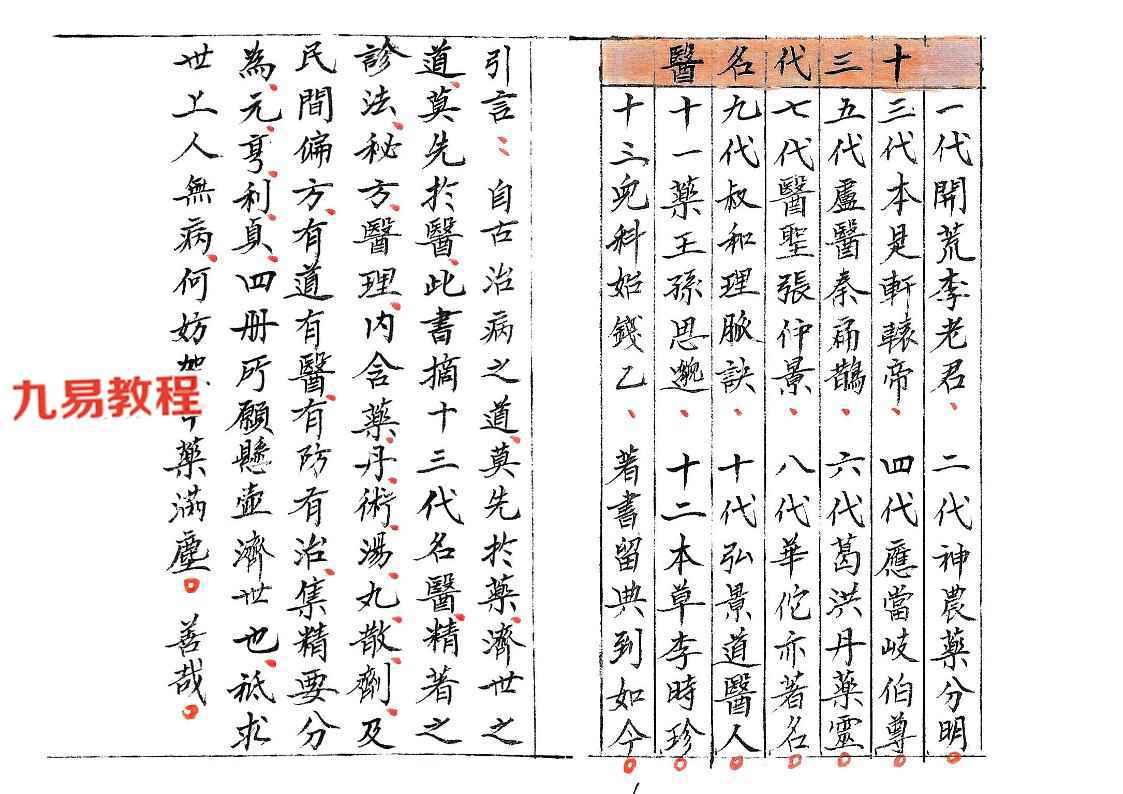 十三代名醫
一代開荒李老君、二代神農藥分明。
三代本是軒轅帝、四代應當岐伯尊。
五代盧醫秦扁鵲、六代葛洪丹藥靈。
七代醫聖張仲景、八代華佗亦著名。
九代叔和理脈訣、十代弘景道醫人。
十一藥王孫思邈、十二本草李時珍。
十三兒科始錢乙、著書留典到如今。
引言：自古治病之道、莫先於藥、濟世之
道、莫先於醫、此書摘十三代名醫、精著之
診法、秘方、醫理、内含藥、丹、術、湯、丸、散、劑、及
民間偏方、有道有醫、有防有治、集精要分
為、元、亨、利、貞、四册所願懸壺濟世也、祗求
世上人無病、何妨架藥滿塵。善哉。
九易教程